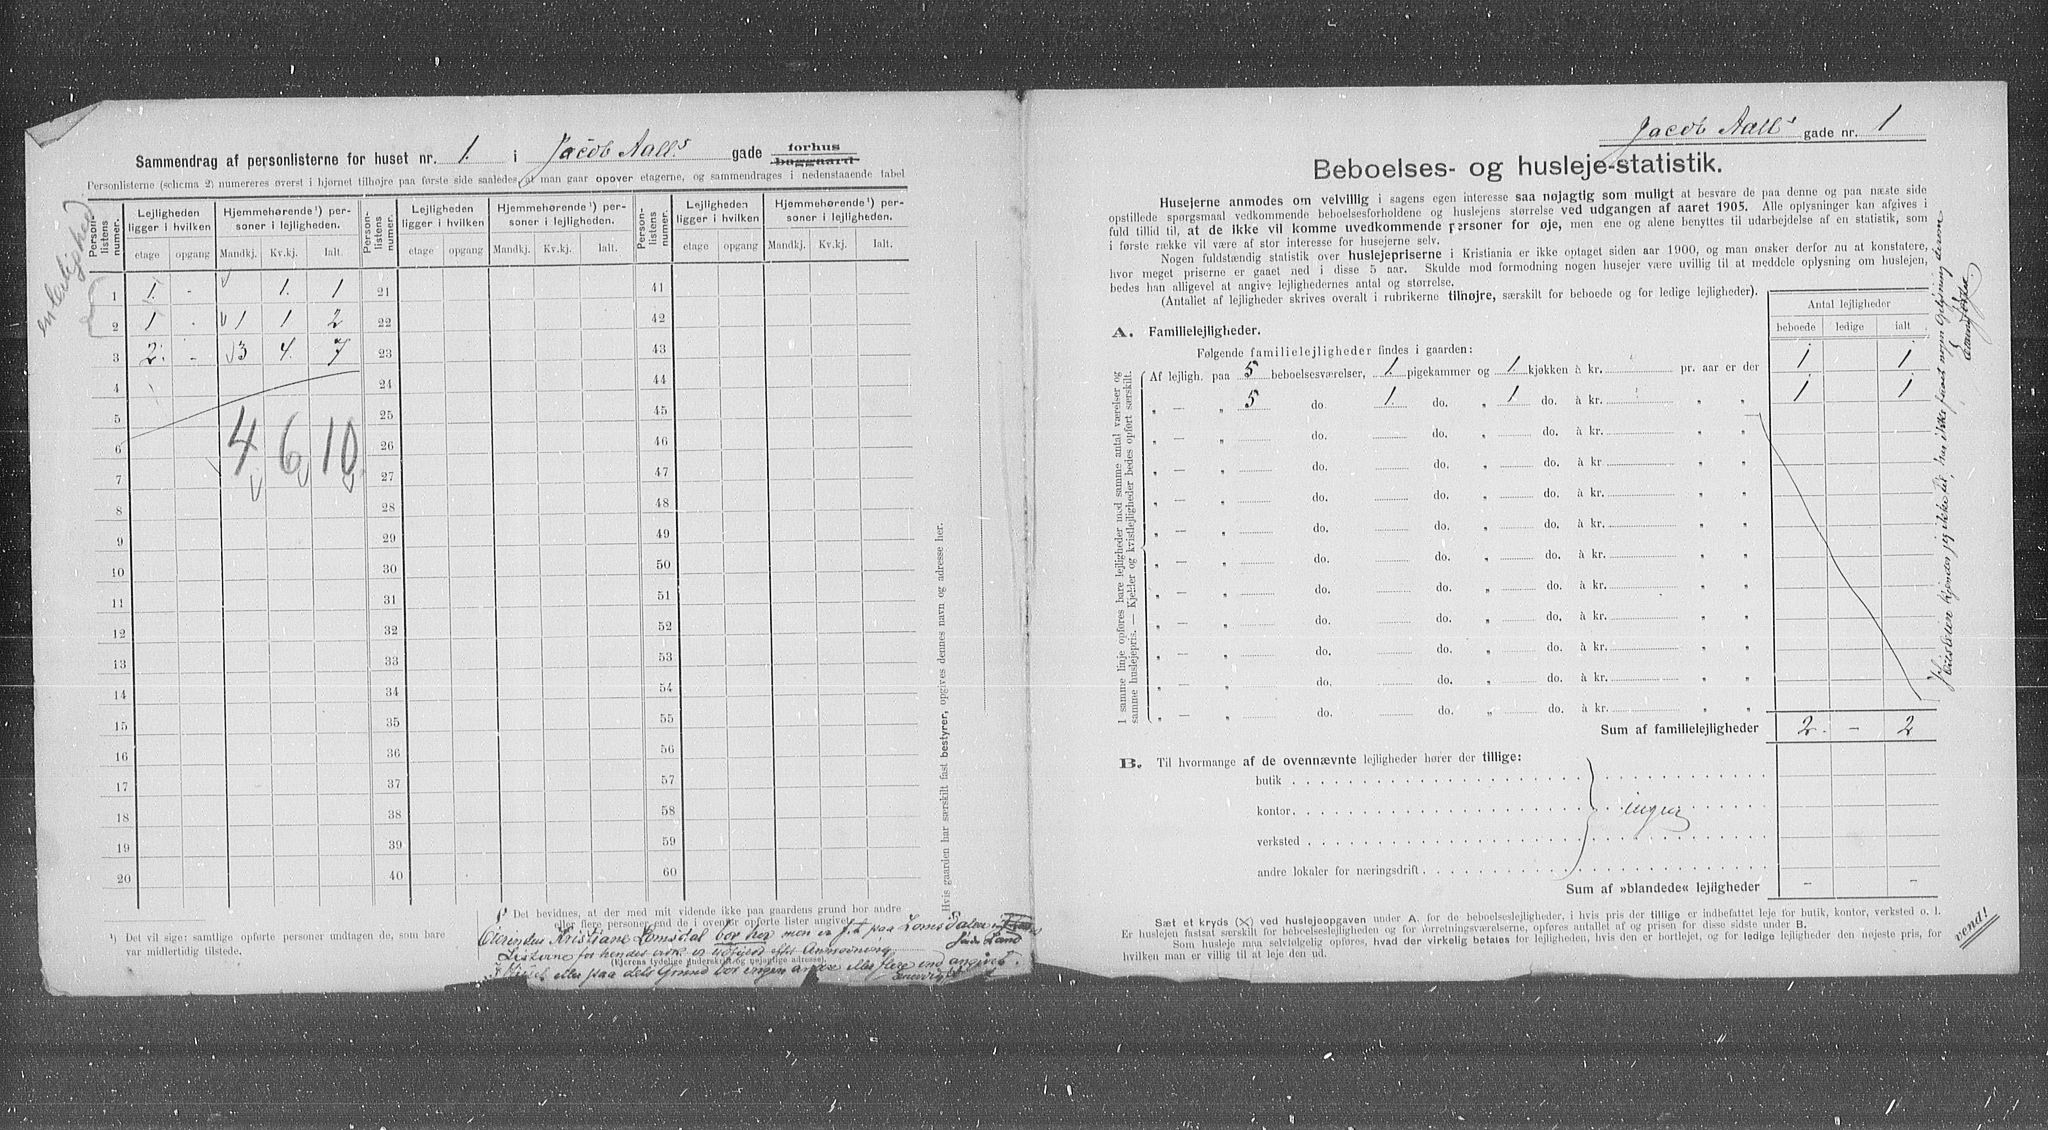 Sammendrag af personlisterne for huset nr. 1. i Jacob Aalls gade forhus baggaard
Personlisterne (schema 2) numereres øverst i hjørnet tilhøjre paa første side saaledes, at man gaar opover etagerne, og sammendrages i nedenstaaende tabel
en leilighed
Person-listens numer. Lejligheden ligger i hvilken Hjemmehørende¹) personer i lejligheden. Person-listens numer. Lejligheden ligger i hvilken Hjemmehørende¹) personer i lejligheden. Person-listens numer. Lejligheden ligger i hvilken Hjemmehørende¹) personer i lejligheden.
etage opgang Mandkj. Kv.kj. Ialt. etage opgang Mandkj. Kv.kj. Ialt. etage opgang Mandkj. Kv.kj. Ialt.
1 1. - 1. 1 21 41
2 1 - 1 1 2 22 42
3 2. - 3 4. 7 23 43
4 24 44
5 25 45
6 4 6 10 26 46
7 27 47
8 28 48
9 29 49
10 30 50
11 31 51
12 32 52
13 33 53
14 34 54
15 35 55
16 36 56
17 37 57
18 38 58
19 39 59
20 40 60
¹) Det vil sige: samtlige opførte personer undtagen de, som bare var midlertidig tilstede.
Det bevidnes, at der med mit vidende ikke paa gaardens grund bor andre
eller flere personer end de i ovenfor opførte lister angivet
Kristiane Lomsdal bor her men er født paa Lomsdalen
Søndre Land
Listerne for hendes
(Ejerens tydelige underskrift og nøjagtige adresse).
eller paa dets Grund bor ingen andre eller flere end angivet
Hvis gaarden har særskilt fast bestyrer, opgives dennes navn og adresse her.
Jacob Aalls gade nr. 1
Beboelses- og husleje-statistik.
Husejerne anmodes om velvillig i sagens egen interesse saa nøjagtig som muligt at besvare de paa denne og paa næste side
opstillede spørgsmaal vedkommende beboelsesforholdene og huslejens størrelse ved udgangen af aaret 1905. Alle oplysninger kan afgives i
fuld tillid til, at de ikke vil komme uvedkommende personer for øje, men ene og alene benyttes til udarbejdelse af en statistik, som
i første række vil være af stor interesse for husejerne selv.
Nogen fuldstændig statistik over huslejepriserne i Kristiania er ikke optaget siden aar 1900, og man ønsker derfor nu at konstatere,
hvor meget priserne er gaaet ned i disse 5 aar. Skulde mod formodning nogen husejer være uvillig til at meddele oplysning om huslejen,
bedes han alligevel at angive lejlighedernes antal og størrelse.
(Antallet af lejligheder skrives overalt i rubrikerne tilhøjre, særskilt for beboede og for ledige lejligheder).
Antal lejligheder
beboede ledige ialt
A. Familielejligheder.
Følgende familielejligheder findes i gaarden:
Af lejligh. paa 5 beboelsesværelser, 1. pigekammer og 1. kjøkken à kr. pr. aar er der 1. 1.
„ — „ 5 do. 1. do. „ 1 do. à kr. „ „ 1. 1.
„ — „ do. do. „ do. à kr. „ „
„ — „ do. do. „ do. à kr „ „
„ — „ do. do. „ do. à kr. „ „
„ — „ do. do. „ do. à kr. „ „
„ — „ do. do. „ do. à kr. „ „
„ — „ do. do. „ do. à kr. „ „
„ — „ do. do. „ do. à kr. „ „
„ — „ do. do. „ do. à kr. „ „
„ — „ do. do. „ do. à kr. „ „
„ — „ do. do. „ do. à kr. „ „
I samme linje opføres bare lejligheder med samme antal værelser og
samme huslejepris. — Kjelder og kvistlejligheder bedes opført særskilt.
Sum af familielejligheder 2. - 2
B. Til hvormange af de ovennævnte lejligheder hører der tillige:
butik
kontor ingen
verksted
andre lokaler for næringsdrift
Sum af »blandede« lejligheder - -
Sæt et kryds (X) ved huslejeopgaven under A. for de beboelseslejligheder, i hvis pris der tillige er indbefattet leje for butik, kontor, verksted o. l.
Er huslejen fastsat særskilt for beboelseslejligheden og for forretningsværelserne, opføres antallet af og prisen for disse sidste under B.
Som husleje maa selvfølgelig opføres, hvad der virkelig betales for lejligheden, hvis den er bortlejet, og for ledige lejligheder den nøjeste pris, for
hvilken man er villig til at leje den ud.
vend!
Huslejen kjender jeg ikke til, har ikke faaet nogen Oplysning derom